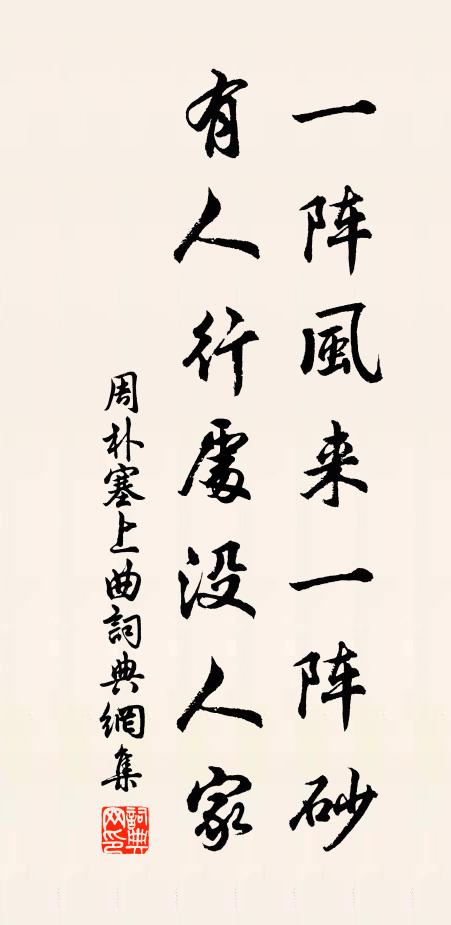 一阵風来一阵砂
有人行處没人家
周朴塞上曲詞典網集
詞典網印